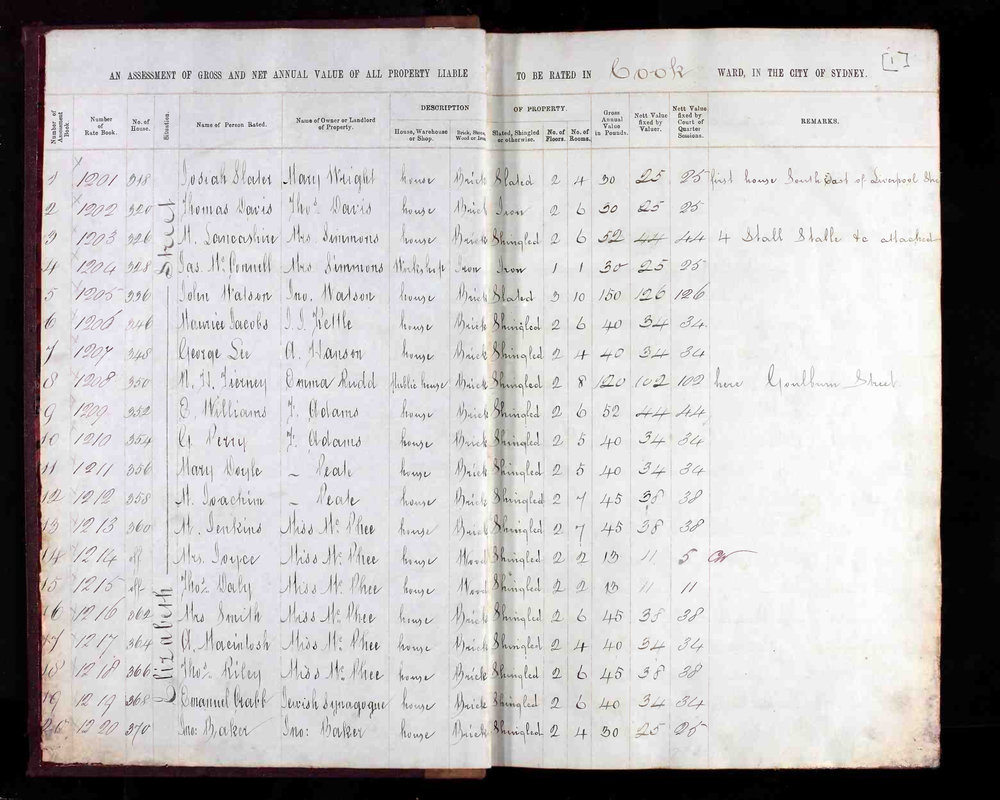 [1]
AN ASSESSMENT OF GROSS AND NET ANNUAL VALUE OF ALL PROPERTY LIABLE TO BE RATED IN Cook WARD, IN THE CITY OF SYDNEY.
DESCRIPTION OF PROPERTY.
Number of Assessment Book. Number of Rate Book. No. of House. Situation. Name of Person Rated. Name of Owner or Landlord of Property. House, Warehouse or Shop. Brick, Stone, Wood or Iron Slated, Shingled or otherwise. No. of Floors. No. of Rooms. Gross Annual Value in Pounds. Nett Value fixed by Valuer. Nett Value fixed by Court of Quarter Sessions. REMARKS.
Elizabeth Street
1 1201 318 Josiah Slater Mary Wright house Brick Slated 2 4 30 25 25 first house South East of Liverpool Stre
2 1202 320 Thomas Davis Thos. Davis house Brick Iron 2 6 30 25 25
3 1203 326 M. Lancashire Mrs. Simmons house Brick Shingled 2 6 52 44 44 4 Stall Stable &c attached
4 1204 328 Jas. McConnell Mrs. Simmons Workshop Iron Iron 1 1 30 25 25
5 1205 336 John Watson Jno. Watson house Brick Slated 3 10 150 126 126
6 1206 346 Maurice Jacobs J. J. Kettle house Brick Shingled 2 6 40 34 34.
7 1207 348 George Lee A. Hanson house Brick Shingled 2 4 40 34 34
8 1208 350 M. H. Tierney Emma Rudd Public house Brick Shingled 2 8 120 102 102 here Goulburn Street.
9 1209 352 E. Williams F. Adams house Brick Shingled 2 6 52 44 44
10 1210 354 G. Perry F. Adams house Brick Shingled 2 5 40 34 34
11 1211 356 Mary Doyle – Peate house Brick Shingled 2 5 40 34 34
12 1212 358 M. Joachim – Peate house Brick Shingled 2 7 45 38 38
13 1213 360 M. Jenkins Miss McPhee house Brick Shingled 2 7 45 38 38
14 1214 off Mrs. Joyce Miss McPhee house Wood Shingled 2 2 13 11 5
15 1215 off Thos. Daly Miss McPhee house Wood Shingled 2 2 13 11 11
16 1216 362 Mrs Smith Miss McPhee house Brick Shingled 2 6 45 38 38
17 1217 364 A. Macintosh Miss McPhee house Brick Shingled 2 4 40 34 34
18 1218 366 Thos. Riley Miss McPhee house Brick Shingled 2 6 45 38 38
19 1219 368 Emanuel Crabb Jewish Synagogue house Brick Shingled 2 6 40 34 34
20 1220 370 Jno: Baker Jno: Baker house Brick Shingled 2 4 30 25 25